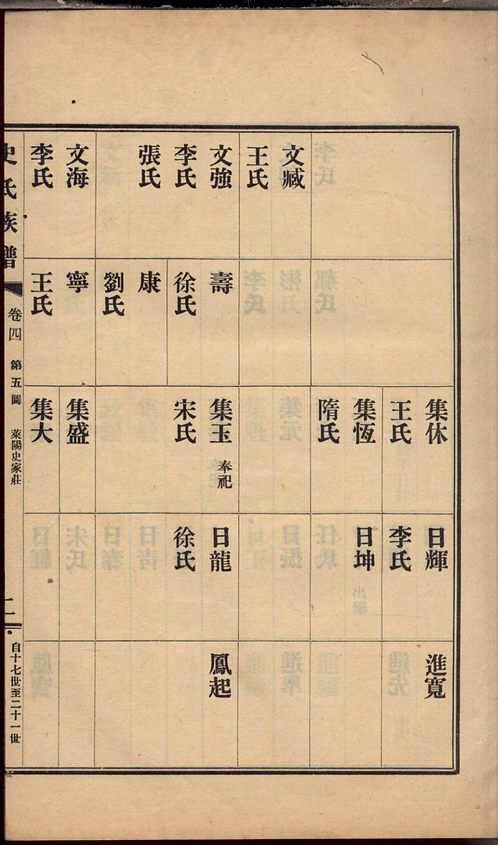 文臧
王氏
文強
李氏
張氏
文海
李氏
壽
徐氏
康
劉氏
寧
王氏
集休
王氏
集恆
隋氏
集玉 奉祀
宋氏
集盛
集大
日輝
李氏
日坤
日龍
徐氏
進寬
鳳起
史氏族譜
卷四
第五圖
萊陽史家莊
自十七世至二十一世